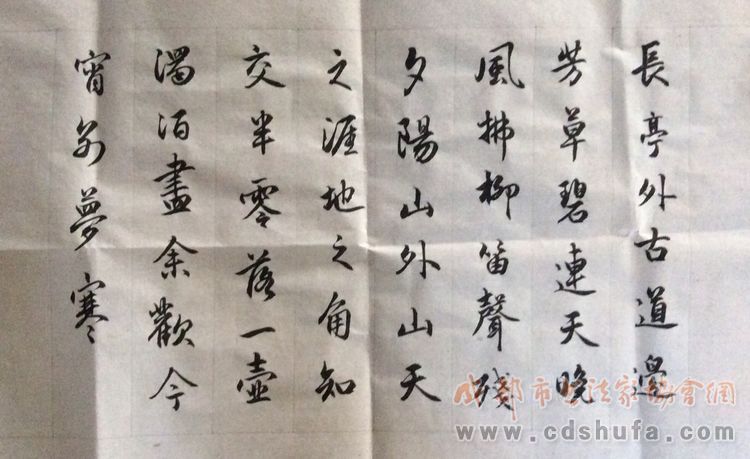 長亭外古道邊
芳草碧連天晚
風拂柳笛聲殘
夕陽山外山天
之涯地之角知
交半零落一壺
濁酒盡余歡今
宵別夢寒
成都市书法家協會網
www.cdshufa.com